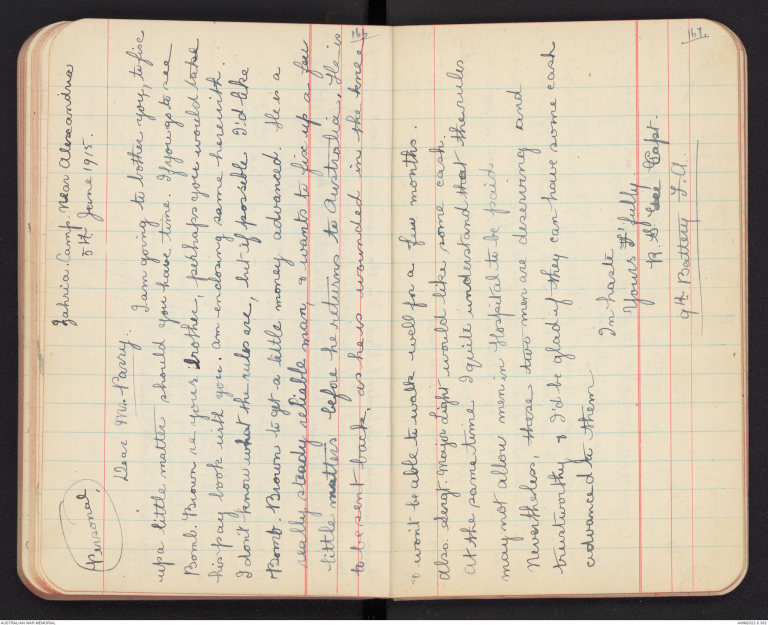 166.
Personal.
Zahria. Camp. Near Alexandria
8th June 1915.
Dear Mr. Parry.
I am going to bother you, to fix
up a little matter should you have time. If you go to see
Bomb. Brown re your brother, perhaps you would take
his pay book with you. am enclosing same herewith.
I don't know what the rules are, but if possible I'd like
Bomb. Brown to get a little money advanced. He is a
really steady reliable man, & wants to fix up a few
little matters before he returns to Australia. He is
to be sent back, as he is wounded in the knee
167.
& wont be able to walk well for a few months.
also. Sergt. Major Light would like some cash.
At the same time I quite understand that the rules
may not allow men in Hospital to be paid.
Nevertheless, these two men are deserving and
trustworthy & I'd be glad if they can have some cash
advanced to them.
In haste
Yours F'fully
Capt.
9th Battery F.A.
AUSTRALIAN WAR MEMORIAL